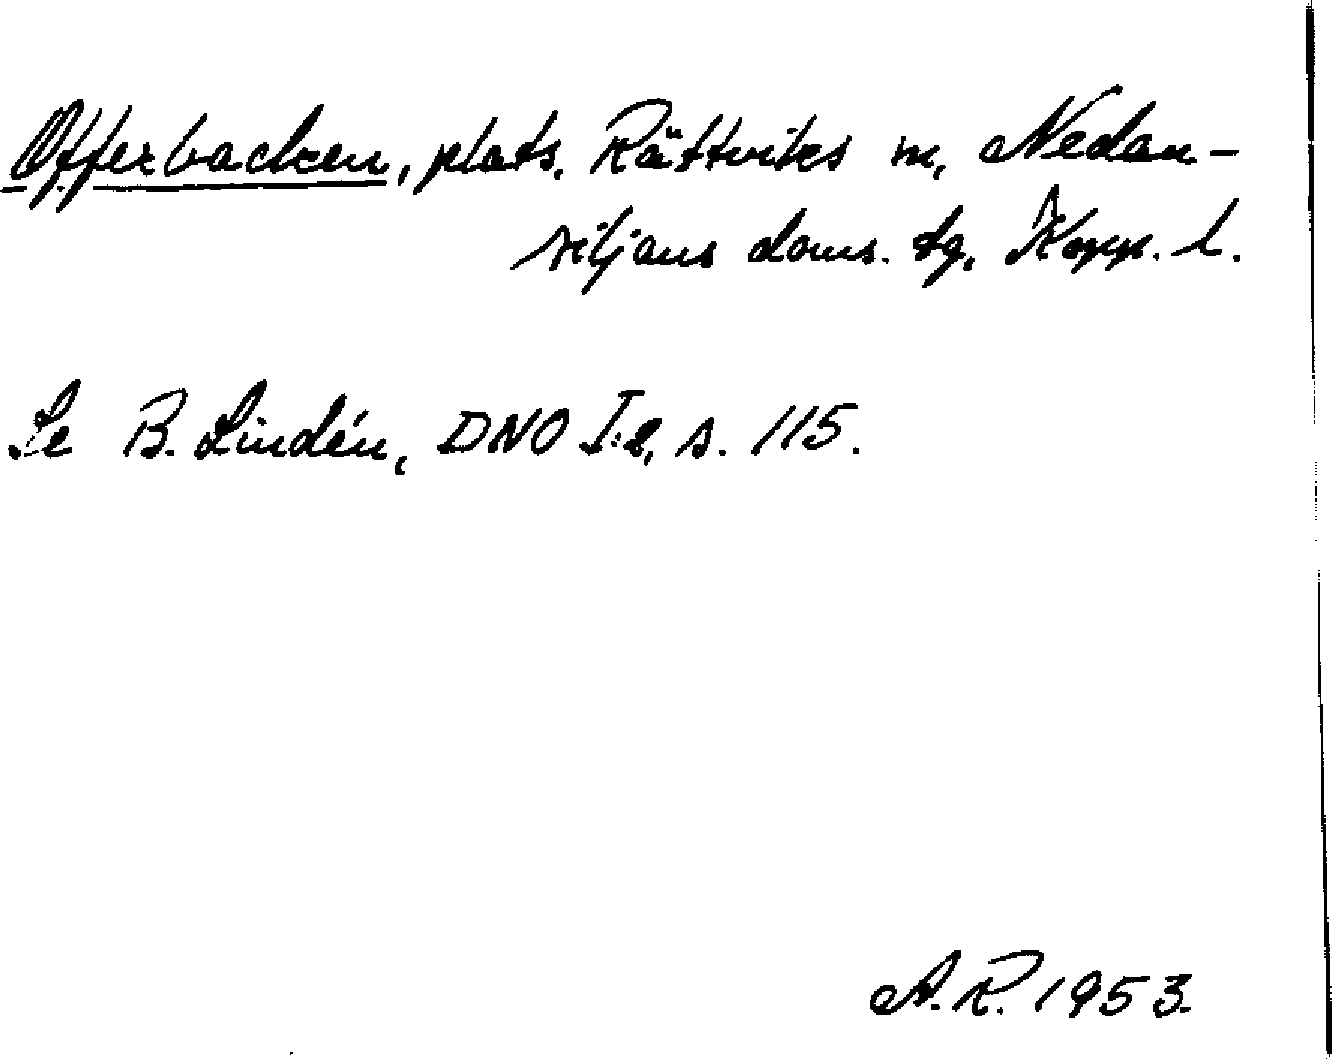 Offerbacken, plats. Rättviks m, Nedan-
siljans doms. tg, Kopp. l.
Se B. Lindén, DNO I:2, s. 115.
A.R. 1953.